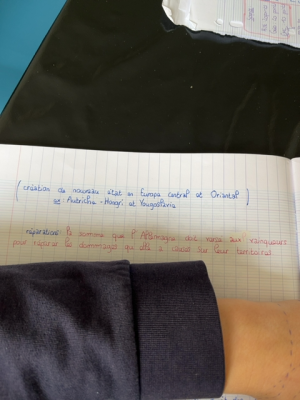 (création de nouveaux état en Europe central et Oriental)
et Autriche-Hongri et Yougoslavie
réparation: la somme que l'Allemagne doit verse aux vainqueurs
pour réparer les dommages qu'elle a causé sur leur territoires